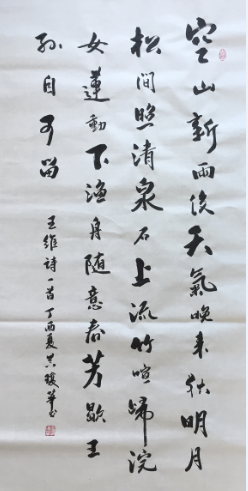 空山新雨後天氣晚来秋明月
松間照清泉石上流竹喧歸浣
女蓮動下漁舟隨意春芳歇王
孫自可留
王維詩一首丁酉夏